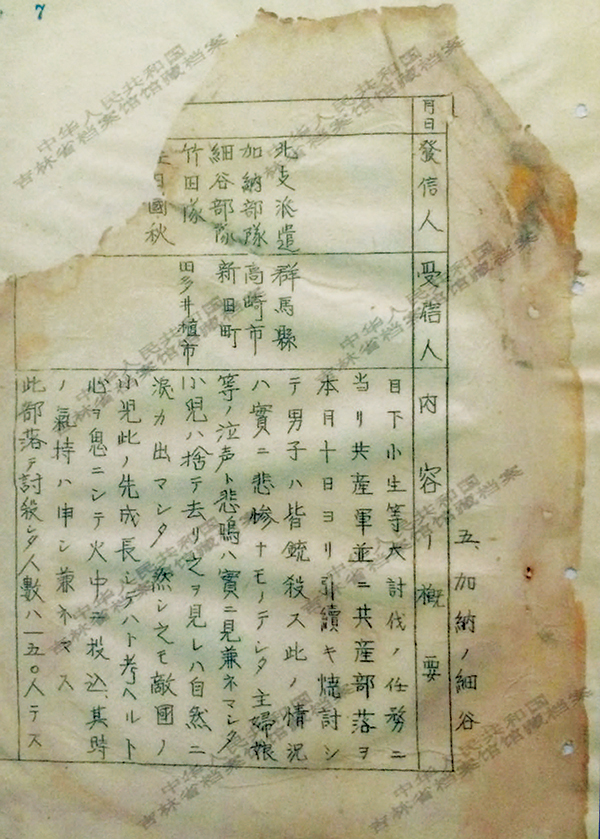 7
五、加納ノ細谷
月日
發信人
受信人
内容ノ概要
北支派遣
加納部隊
細谷部隊
竹田隊
國秋
群馬縣
高崎市
新田町
田多井植市
目下小生等大討伐ノ任務ニ
当リ共産軍並ニ共産部落ヲ
本月十日ヨリ引續キ焼討シ
テ男子ハ皆銃殺ス此ノ情況
ハ實ニ悲惨ナモノデシタ主婦娘
等ノ泣声ト悲鳴ハ實ニ見兼ネマシタ
小児ハ捨テ去リ之ヲ見レハ自然ニ
涙カ出マシタ然シ之モ敵國ノ
小児此ノ先成長シテハト考ヘルト
心ヲ鬼ニシテ火中ニ投込、其時
ノ氣持ハ申シ兼ネマス
此部落テ討殺シタ人數ハ一五〇人テス
中华人民共和国
吉林省档案馆馆藏档案